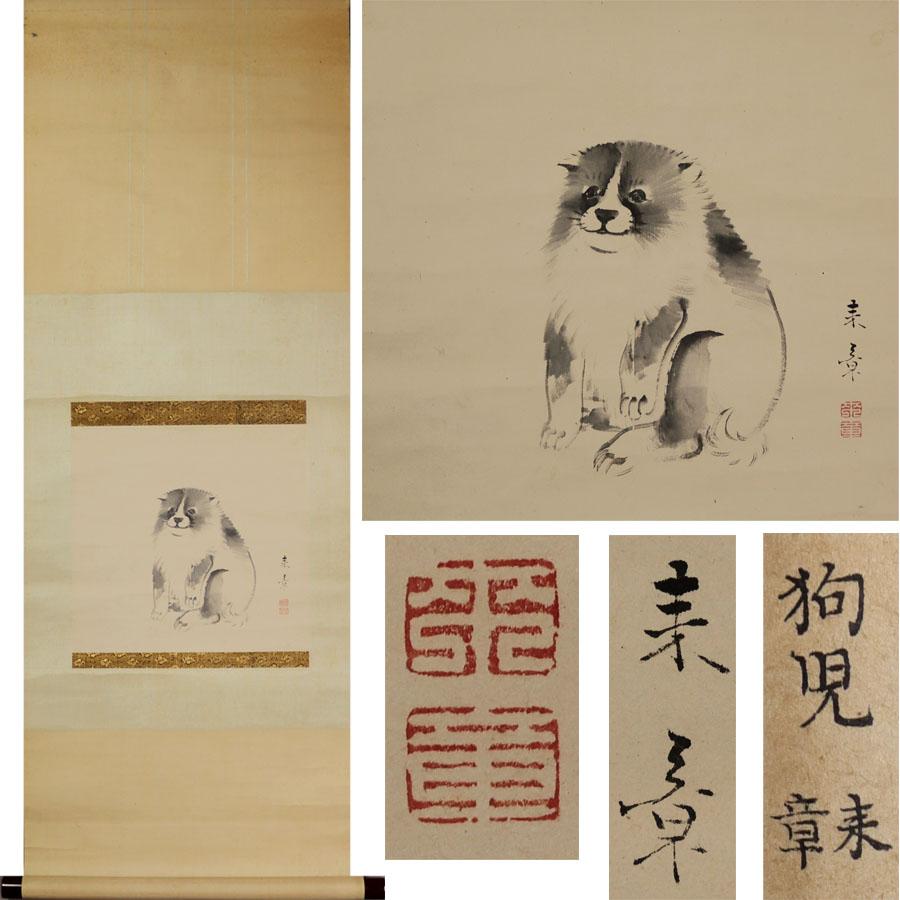 来章
来章
来章
狗児
来章